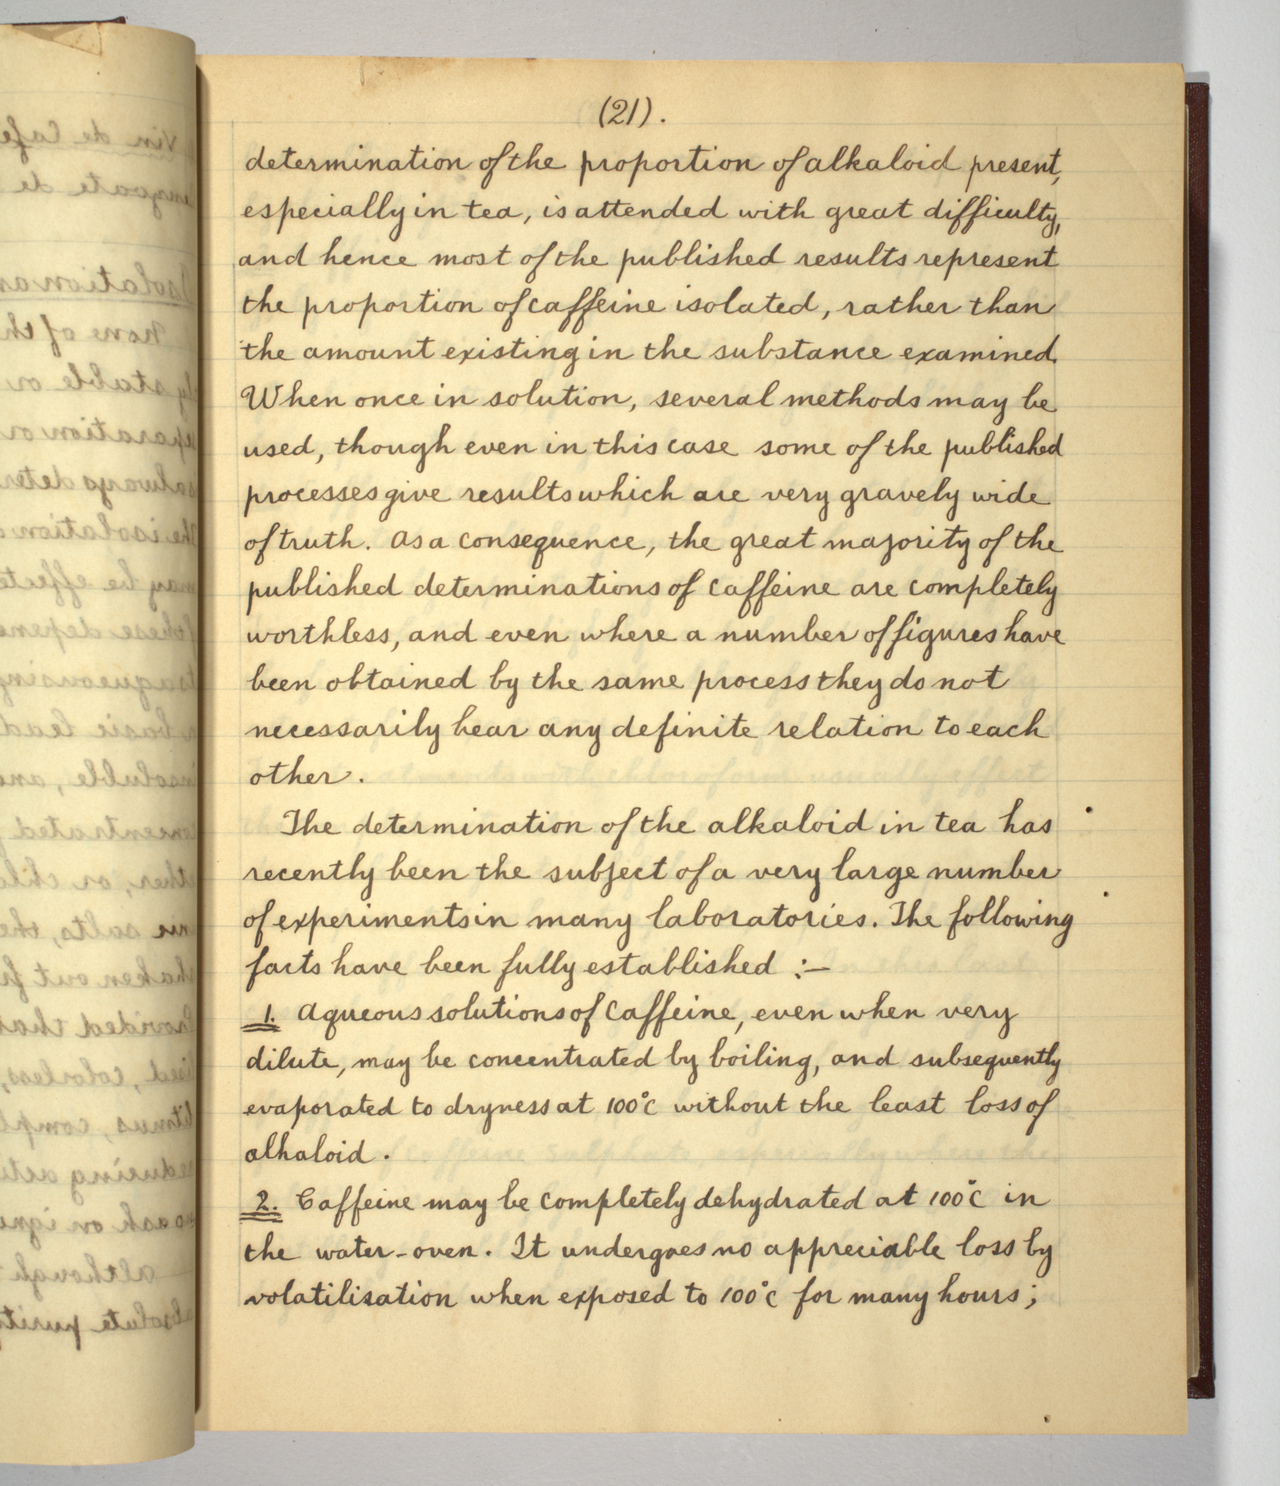 (21).
determination of the proportion of alkaloid present,
especially in tea, is attended with great difficulty,
and hence most of the published results represent
the proportion of caffeine isolated, rather than
the amount existing in the substance examined.
When once in solution, several methods may be
used, though even in this case some of the published
processes give results which are very gravely wide
of truth. As a consequence, the great majority of the
published determinations of caffeine are completely
worthless, and even where a number of figures have
been obtained by the same process they do not
necessarily bear any definite relation to each
other.
The determination of the alkaloid in tea has
recently been the subject of a very large number
of experiments in many laboratories. The following
facts have been fully established :—
1. Aqueous solutions of Caffeine, even when very
dilute, may be concentrated by boiling, and subsequently
evaporated to dryness at 100°C without the least loss of
alkaloid.
2. Caffeine may be completely dehydrated at 100°C in
the water-oven. It undergoes no appreciable loss by
volatilisation when exposed to 100°C for many hours;